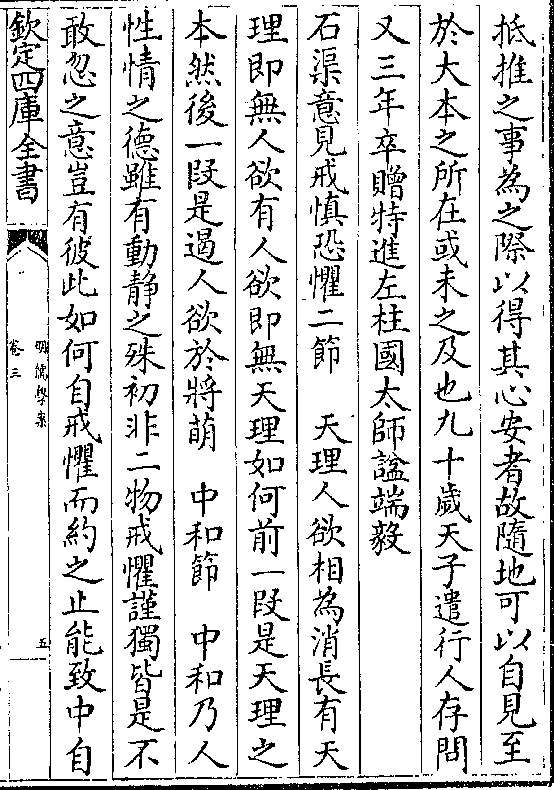 抵推之事為之際以得其心安者故隨地可以自見至
於大本之所在或未之及也九十歲天子遣行人存問
又三年卒贈特進左柱國太師諡端毅
石渠意見戒慎恐懼二節　天理人欲相為消長有天
理即無人欲有人欲即無天理如何前一段是天理之
本然後一段是遏人欲於將萌　中和節　中和乃人
性情之德雖有動靜之殊初非二物戒懼謹獨皆是不
敢忽之意豈有彼此如何自戒懼而約之止能致中自
欽定四庫全書
明儒學案
卷三
五